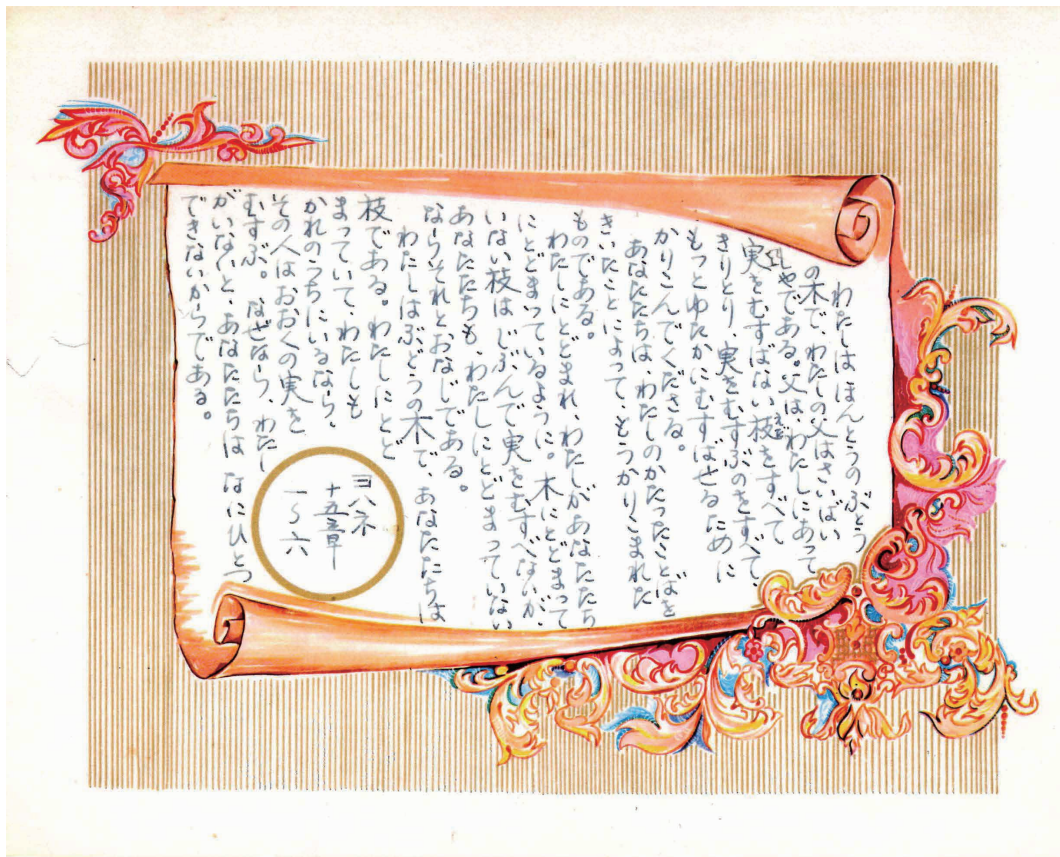 わたしはほんとうのぶどう
の木で、わたしの父はさいばい
しゃである。父はわたしにあって
実をむすばない枝をすべて
きりとり、実をむすぶのをすべて、
もっとゆたかにむすばせるために
かりこんでくださる。
あなたたちは、わたしのかたったことばを
きいたことによって、もうかりこまれた
ものである。
わたしにとどまれ、わたしがあなたたち
にとどまっているように。木にとどまって
いない枝はじぶんで実をむすべないが、
あなたたちも、わたしにとどまっていない
ならそれとおなじである。
わたしはぶどうの木で、あなたたちは
枝である。わたしにとど
まっていて、わたしも
かれのうちにいるなら、
その人はおおくの実を
むすぶ。なぜなら、わたし
がいないと、あなたたちは なにひとつ
できないからである。
ヨハネ
十五章
一〜六